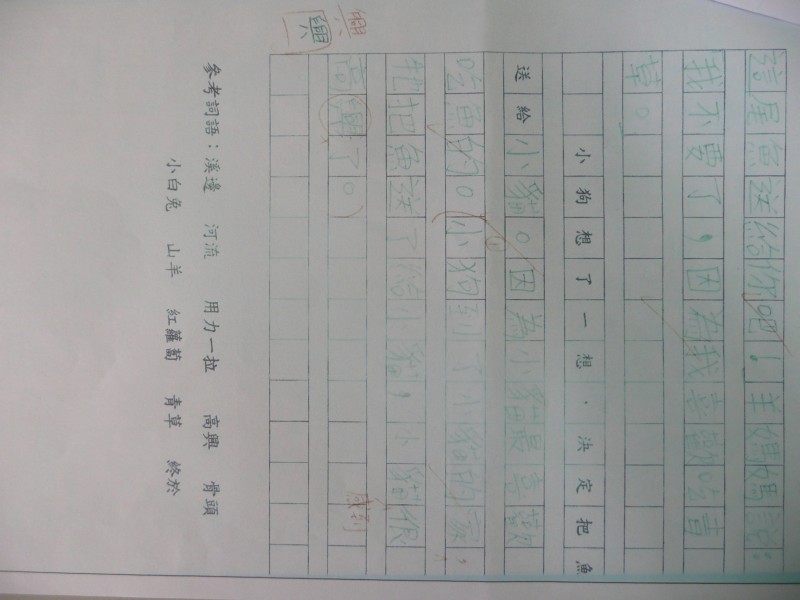 這尾魚送給你吧！羊媽媽說：
我不要了，因為我喜歡吃青
草。
小狗想了一想，決定把魚
送給小貓。因為小貓最喜歡
吃魚的。小狗到了小貓的家，
牠把魚送了給小貓，小貓很
感到
高興了。
興
興
參考詞語：溪邊 河流 用力一拉 高興 骨頭
小白兔 山羊 紅蘿蔔 青草 終於